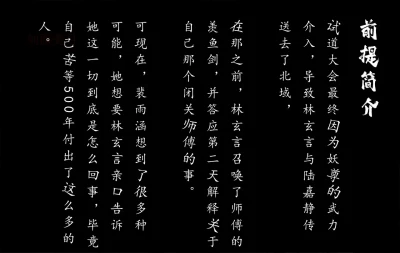 前提简介
试道大会最终因为妖尊的武力
介入，导致林玄言与陆嘉静传
送去了北域，
在那之前，林玄言召唤了师傅的
羡鱼剑，并答应第二天解释关于
自己那个闭关师傅的事。
可现在，裴雨涵想到了很多种
可能，她想要林玄言亲口告诉
她这一切到底是怎么回事，毕竟
自己苦等500年付出了这么多的
人。